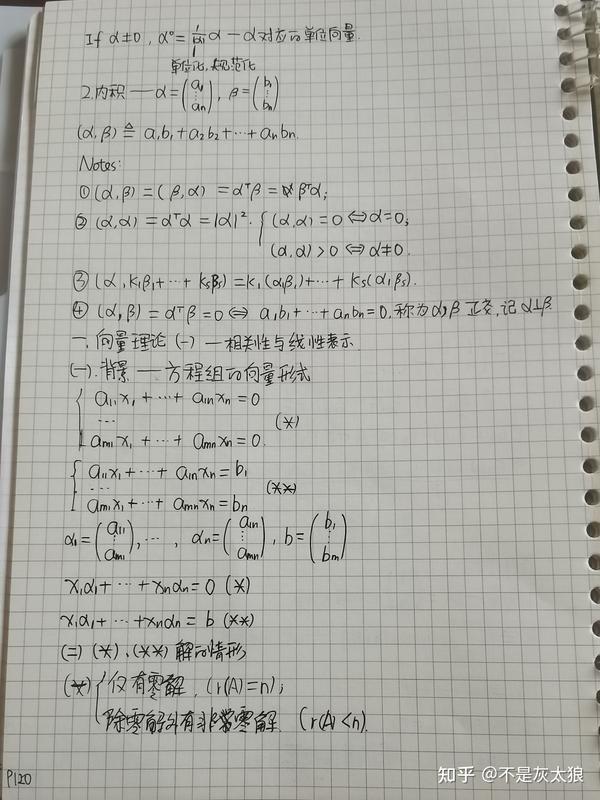 If α≠0, α°=1/|α| α — α对应的单位向量.
单位化,规范化
2.内积 — α=(a₁ ⋮ aₙ), β=(b₁ ⋮ bₙ)
(α,β) ≜ a₁b₁+a₂b₂+⋯+aₙbₙ.
Notes:
①(α,β)=(β,α)=αᵀβ=βᵀα;
②(α,α)=αᵀα=|α|². { (α,α)=0⇔α=0;
(α,α)>0⇔α≠0.
③(α,k₁β₁+⋯+ksβs)=k₁(α,β₁)+⋯+ks(α,βs).
④(α,β)=αᵀβ=0⇔a₁b₁+⋯+aₙbₙ=0.称为α,β正交,记α⊥β
一.向量理论(一)—相关性与线性表示.
(一).背景 — 方程组的向量形式
{ a₁₁x₁+⋯+a₁ₙxₙ=0
⋯ (*)
am₁x₁+⋯+amnxₙ=0.
{ a₁₁x₁+⋯+a₁ₙxₙ=b₁
⋯ (**)
am₁x₁+⋯+amnxₙ=bn
α₁=(a₁₁ ⋮ am₁),⋯, αₙ=(a₁ₙ ⋮ amn), b=(b₁ ⋮ bm)
x₁α₁+⋯+xₙαₙ=0 (*)
x₁α₁+⋯+xₙαₙ=b (**)
(二)(*)、(**)解的情形
(*){ 仅有零解.(r(A)=n);
除零解外有非零解.(r(A)<n).
P120
知乎 @不是灰太狼